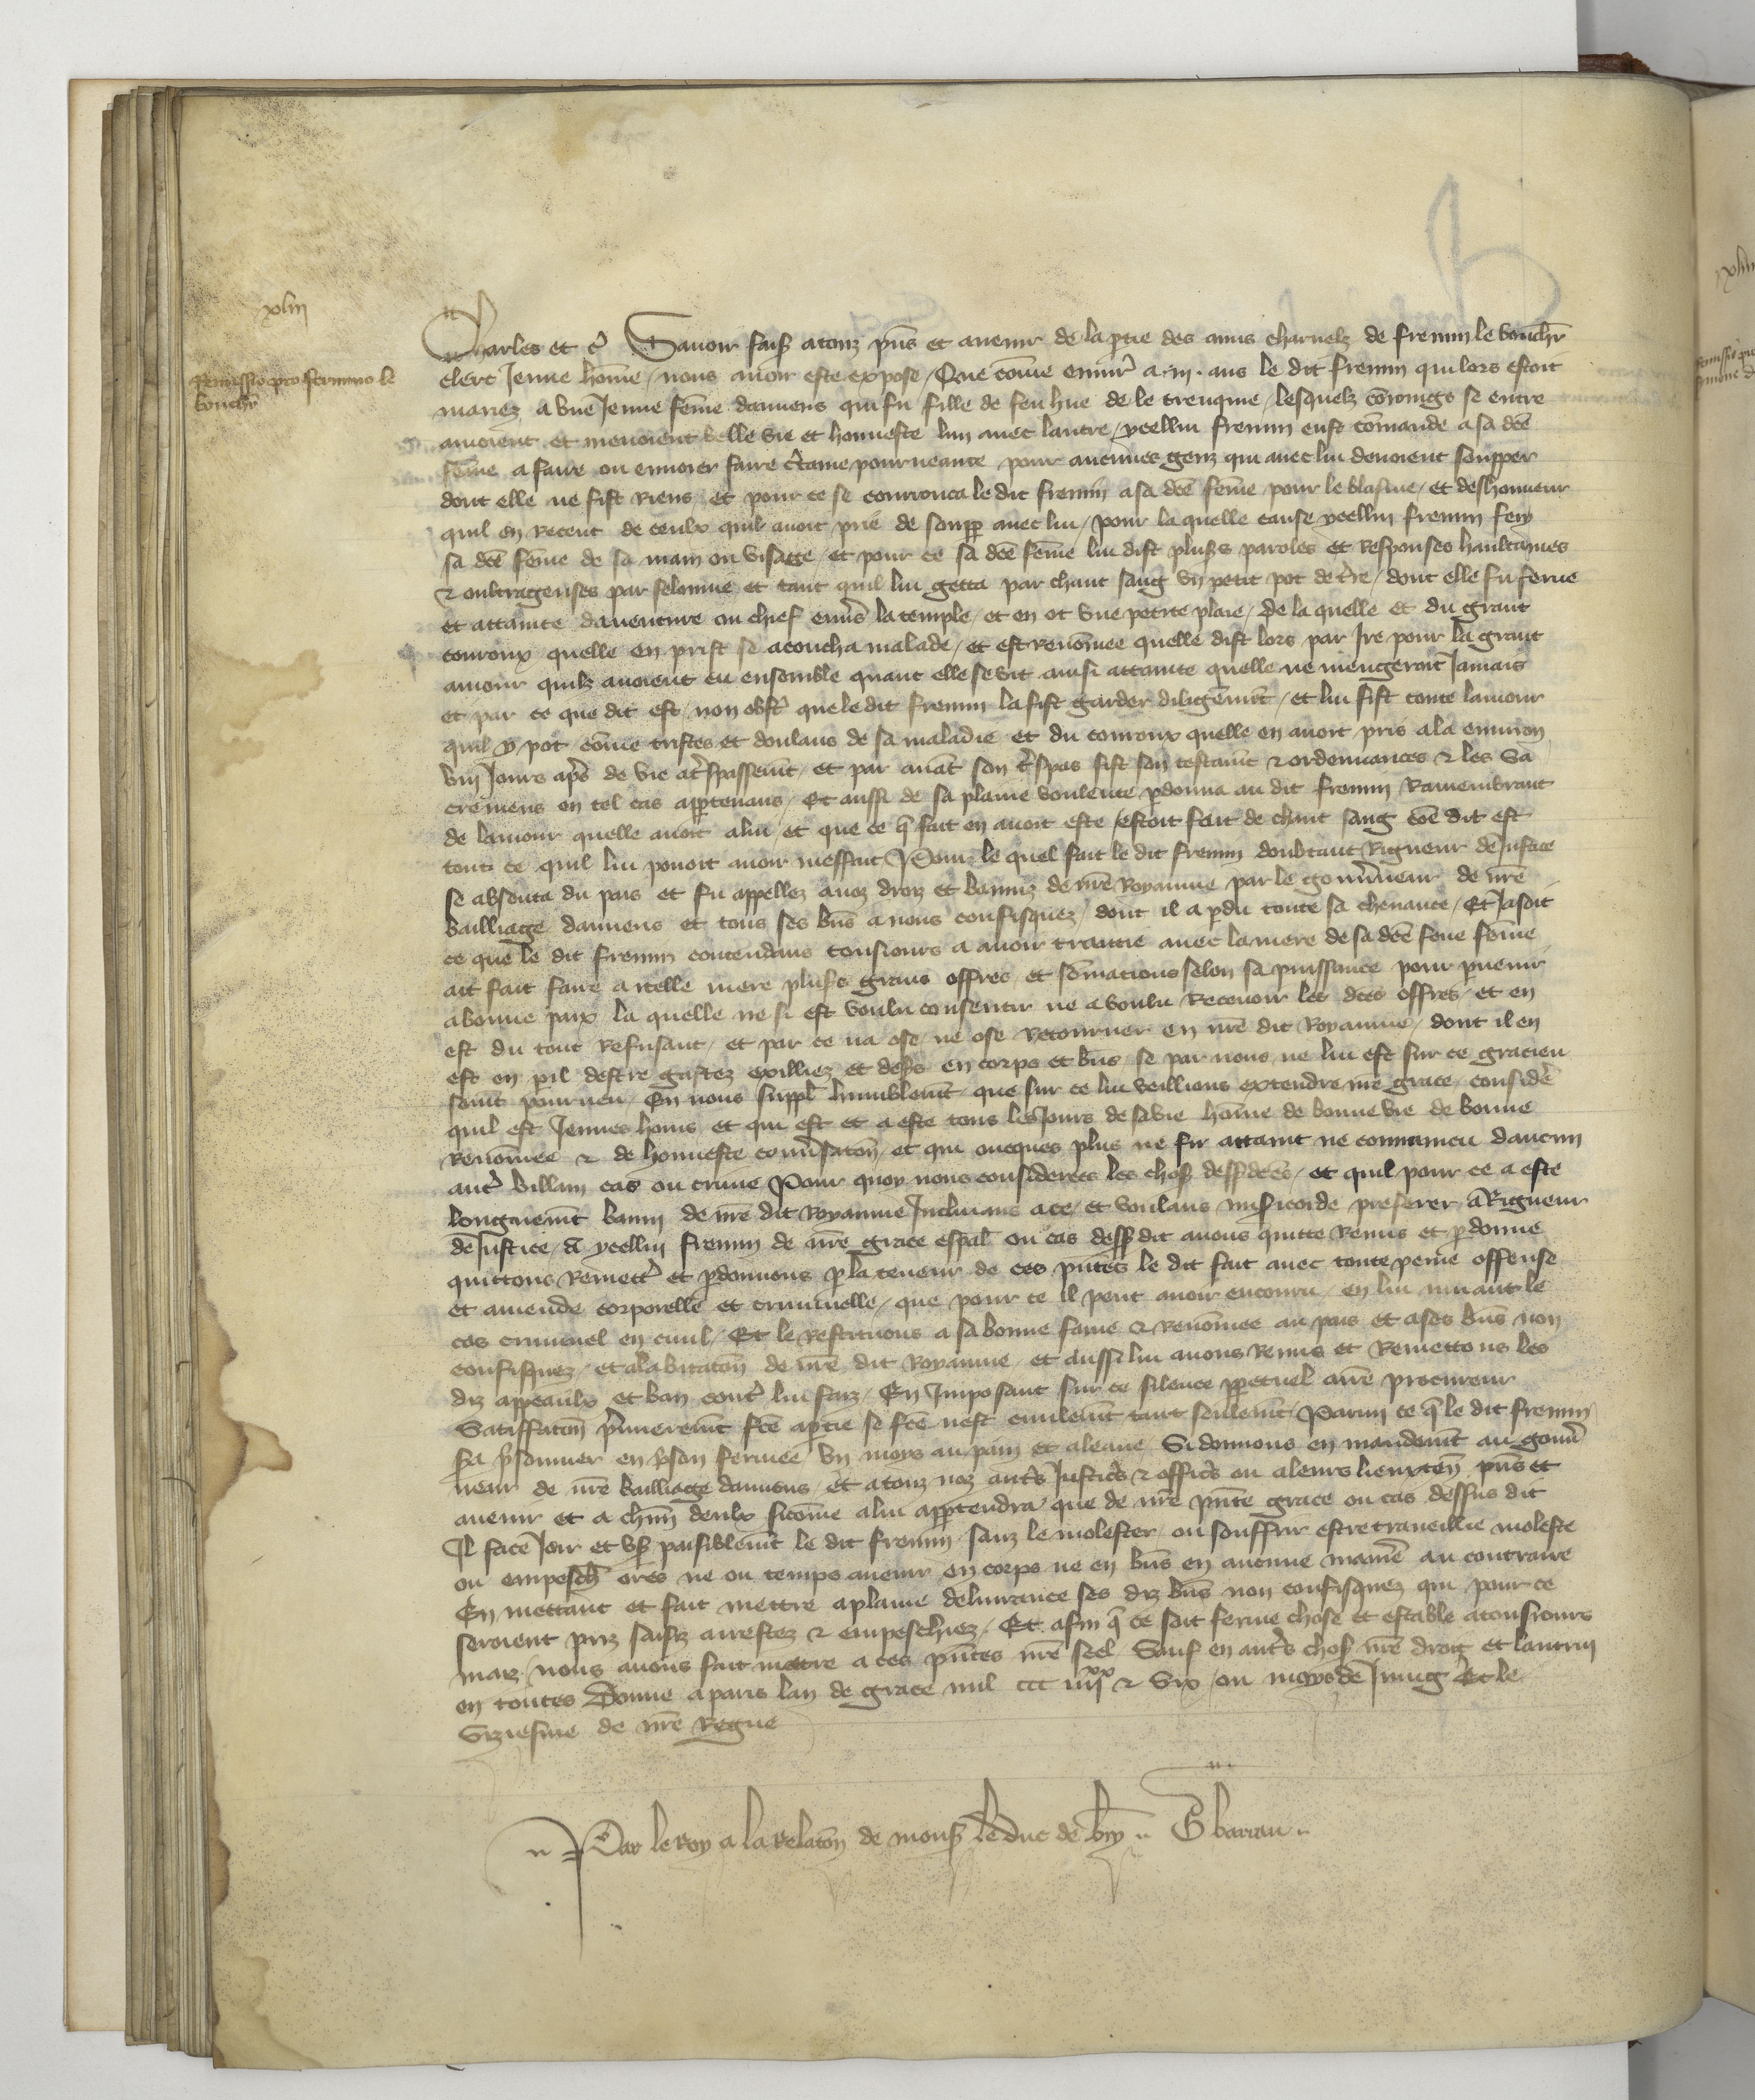 xliii
Remissio pro Fremino le
bouch̄r
Charles et c̄ Savoir faisɀ a touz p̄ns et avenir de la ptie des amis charnelz de fremin le bouch̄r
clerc Jeune hōme / nous avoir este expose / Que cōme enuir̄ a .iii. ans le dit fremin qui lors estoit
mariez a vne Jeune fēme damiens qui fu fille de feu hue de le trenquie / lesquelz cōioings se entre
amoient et menoient belle vie et honneste lun avec lautre / ycellui fremin eust cōmande a sa dc̄e
fēme a faire ou envoier faire c̄taine pourveance pour aucunes genz qui avec lui devoient soupper
dont elle ne fist Riens / et pour ce se courrouca le dit fremin a sa dc̄e fēme pour le blasme / et deshonneur
quil en Receut de ceulx quil avoit prie de soupp avec lui / pour la quelle cause ycellui fremin fery
sa dc̄e fēme de sa main ou visage / et pour ce sa dc̄e fēme lui dist plus̄s paroles et Responses haultaines
& oultrageuses par felonnie et tant quil lui getta par chaut sang vn petit pot de t̄re / dont elle fu ferue
et attainte daventure ou chief env̄s la temple / et en ot vne petite plaie / de la quelle et du grant
courroux quelle en prist se acoucha malade / et est renōmee quelle dist lors par Ire pour la grant
amour quilz avoient eu ensemble quant elle se vit ainsi attainte quelle ne mengeroit Jamais
et par ce que dit est / non obst̄ que le dit fremin la fist garder diligēmt / et lui fist toute lamour
quil y pot / cōme tristes et doulans de sa maladie et du courroux quelle en avoit pris ala environ
viii Jours ap̄s de vie a t̄spassem̄t / et par avāt son t̄spas fist son testam̄t & ordennances & les Sa
cremens en tel cas apptenans / Et aussi de sa plaine voulente pdonna au dit fremin Ramenbrant
de lamour quelle avoit a lui / et que ce q̄ fait en avoit este estoit fait de chaut sang cōe dit est
tout ce quil lui pouoit avoir meffait Pour le quel fait le dit fremin doubtant Rigueur de Justice
se absenta du pais et fu appellez a noz droiz et banniz de nr̄e Royaume par le gouv̄neur de nr̄e
bailliage damiens et tous ses bn̄s a nous confisquez / dont il a pdu toute sa chevance / Et Jasoit
ce que le dit fremin contendans tousiours a avoir traitie avec la mere de sa dc̄e feue fēme
ait fait faire a icelle mere plus̄s grans offres et sōmations selon sa puissance pour pvenir
a bonne paix / la quelle ne si est voulu consentir ne a voulu Recevoir les dc̄es offres / et en
est du tout Refusant / et par ce na ose / ne ose Retourner en nr̄e dit Royaume / dont il en
est en pil destre gastez exilliez et des̄s en corps et bn̄s / se par nous ne lui est sur ce gracieu
sem̄t pourveu / En nous suppl̄ humblem̄t que sur ce lui veillions extendre nr̄e grace / considē
quil est Jeunes homs et qui est et a este tous les Jours de sa vie hōme de bonne vie de bonne
Renōmee & de honneste conv̄satōn / et qui oncques plus ne fu attaint ne convaincu daucun
aut̄ villain cas ou crime Pour quoy nous considerees les chosɀ dessdc̄es / et quil pour ce a este
longuem̄t banni de nr̄e dit Royaume Inclinans a ce / et voulans mis̄icorde preferer a Rigueur
de Justice / A ycellui fremin de nr̄e grace esp̄al ou cas dess dit avons quitte Remis et pdonne
quittons Remett̄ et pdonnons p la teneur de ces p̄ntes le dit fait avec toute peine offense
et amende corporelle et criminelle / que pour ce il peut avoir encouru / en lui muant le
cas criminel en civil / Et le Restituons a sa bonne fame & Renōmee au pais et a ses bn̄s non
confisquez / et a labitatōn de nr̄e dit Royaume / et aussi lui avons Remis et Remettons les
diz appeaulx et ban cont̄ lui faiz / En Imposant sur ce silence ppetuel a nr̄e procureur
Satisfaciōn p̄mierem̄t fc̄e a ptie se fc̄e nest civilem̄t tant seulem̄t / Parmi ce q̄ le dit fremin
s̄a p̄sonnier en p̄son fermee vn moys au pain et a leaue / Si donnons en mandem̄t au gouv̄
neur de nr̄e bailliage damiens / et a touz noz aut̄s Justic̄s & offic̄s ou a leurs lieuxten̄ p̄ns et
avenir et a chūn deulx sicōme a lui apptendra que de nr̄e p̄nte grace ou cas dessus dit
Il facēt Joir et vs̄ paisiblem̄t le dit fremin sanz le molester / ou souffrir estre traveillie moleste
ou empesch̄ ores ne ou temps avenir en corps ne en bn̄s en aucune manīe au contraire
En mettant et fait mettre a plaine delivrance ses diz bn̄s non confisquez qui pour ce
seroient priz saisiz arrestez & empeschiez / Et afin q̄ ce soit ferme chose et estable a tousiours
maiz / nous avons fait mettre a ces p̄ntes nr̄e seel / Sauf en aut̄s chosɀ nr̄e droit et lautrui
en toutes Donne a paris lan de grace mil ccc iiii xx & vix / ou moys de Juing Et le
vizieme de nr̄e Regne
Par le Roy a la Relatōn de mons̄ le duc de b̄ry G barrau